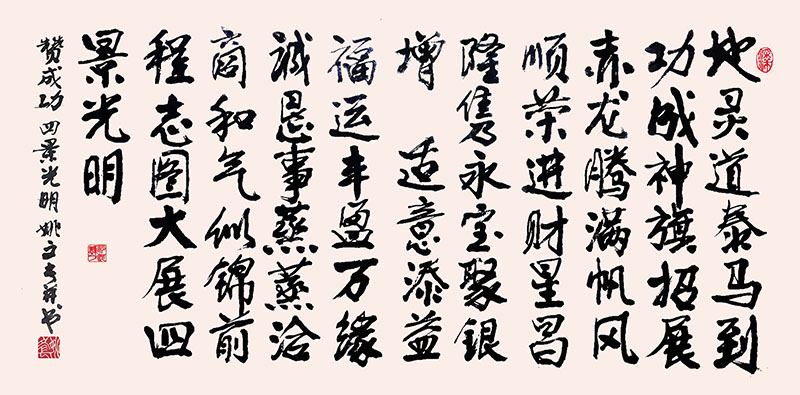 地灵道泰马到
功成神旗招展
赤龙腾满帆风
顺荣进财星昌
隆隽永宝聚银
增 适意添益
福运丰盈万缘
诚恳事蒸蒸洽
商和气似锦前
程志图大展四
景光明
赞成功 四景光明 姚立 书